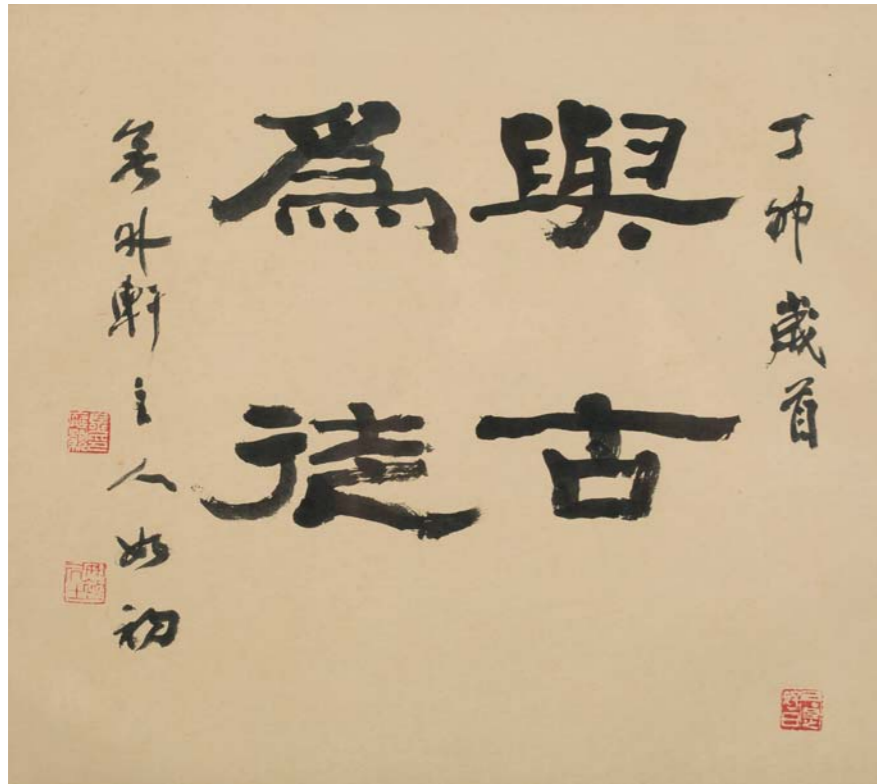 丁卯歲首
與古
爲徒
無外軒主人如初